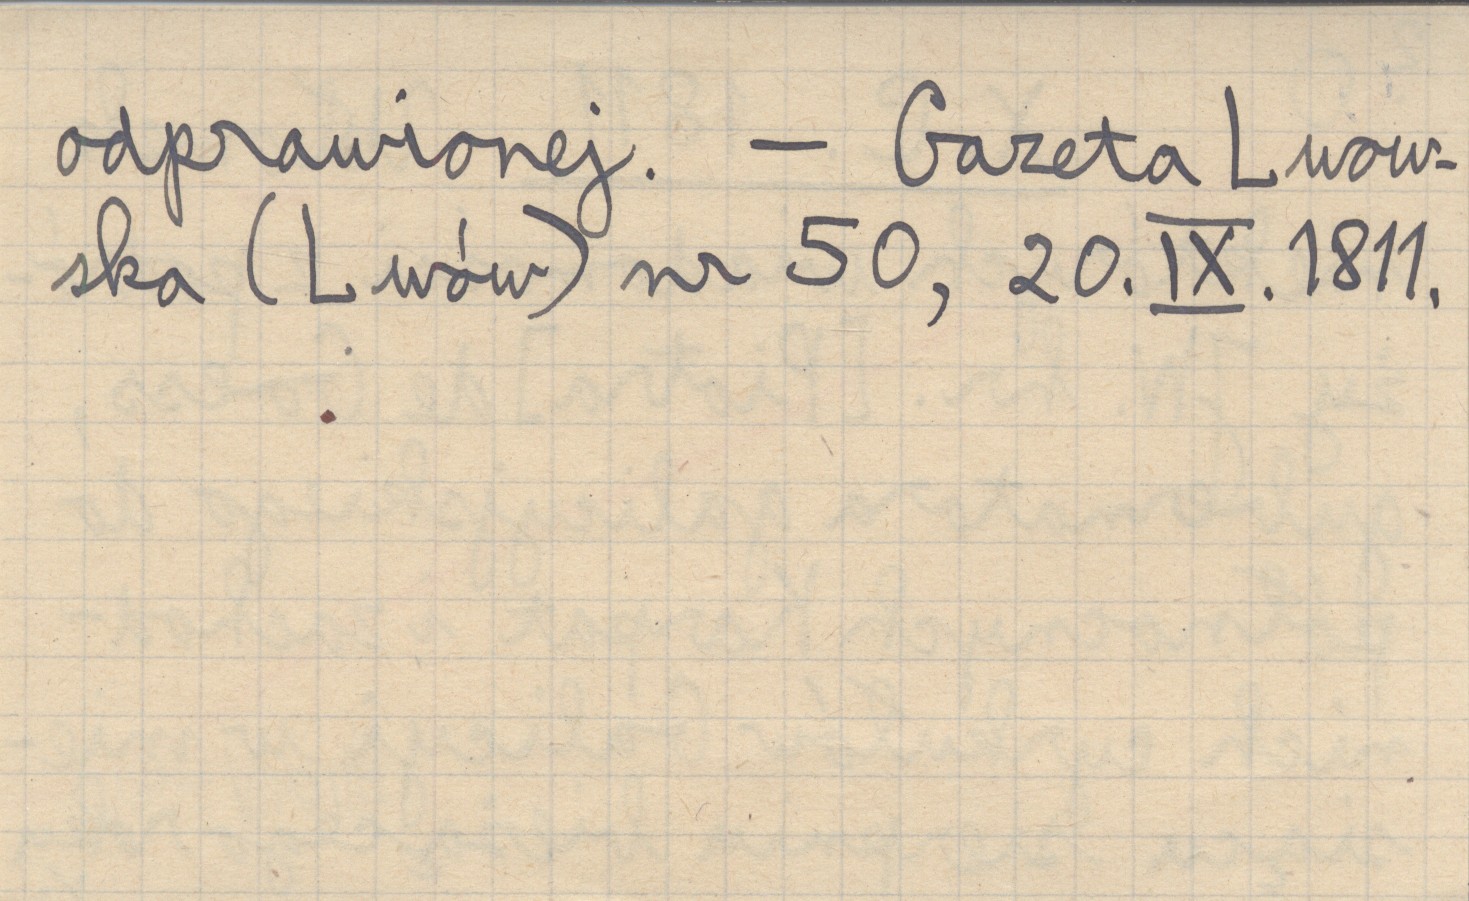 odprawionej. — Gazeta Lwow-
ska (Lwów) nr 50, 20. IX. 1811.